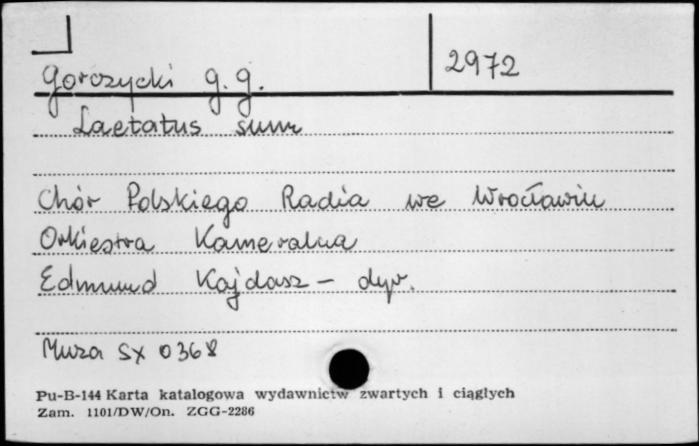 Gorczycki g. g.
2972
Laetatus sum
Chór Polskiego Radia we Wrocławiu
Orkiestra Kameralna
Edmund Kajdasz – dyr.
Muza SX 0368
Pu-B-144 Karta katalogowa wydawnictw zwartych i ciągłych
Zam. 1101/DW/On. ZGG-2286